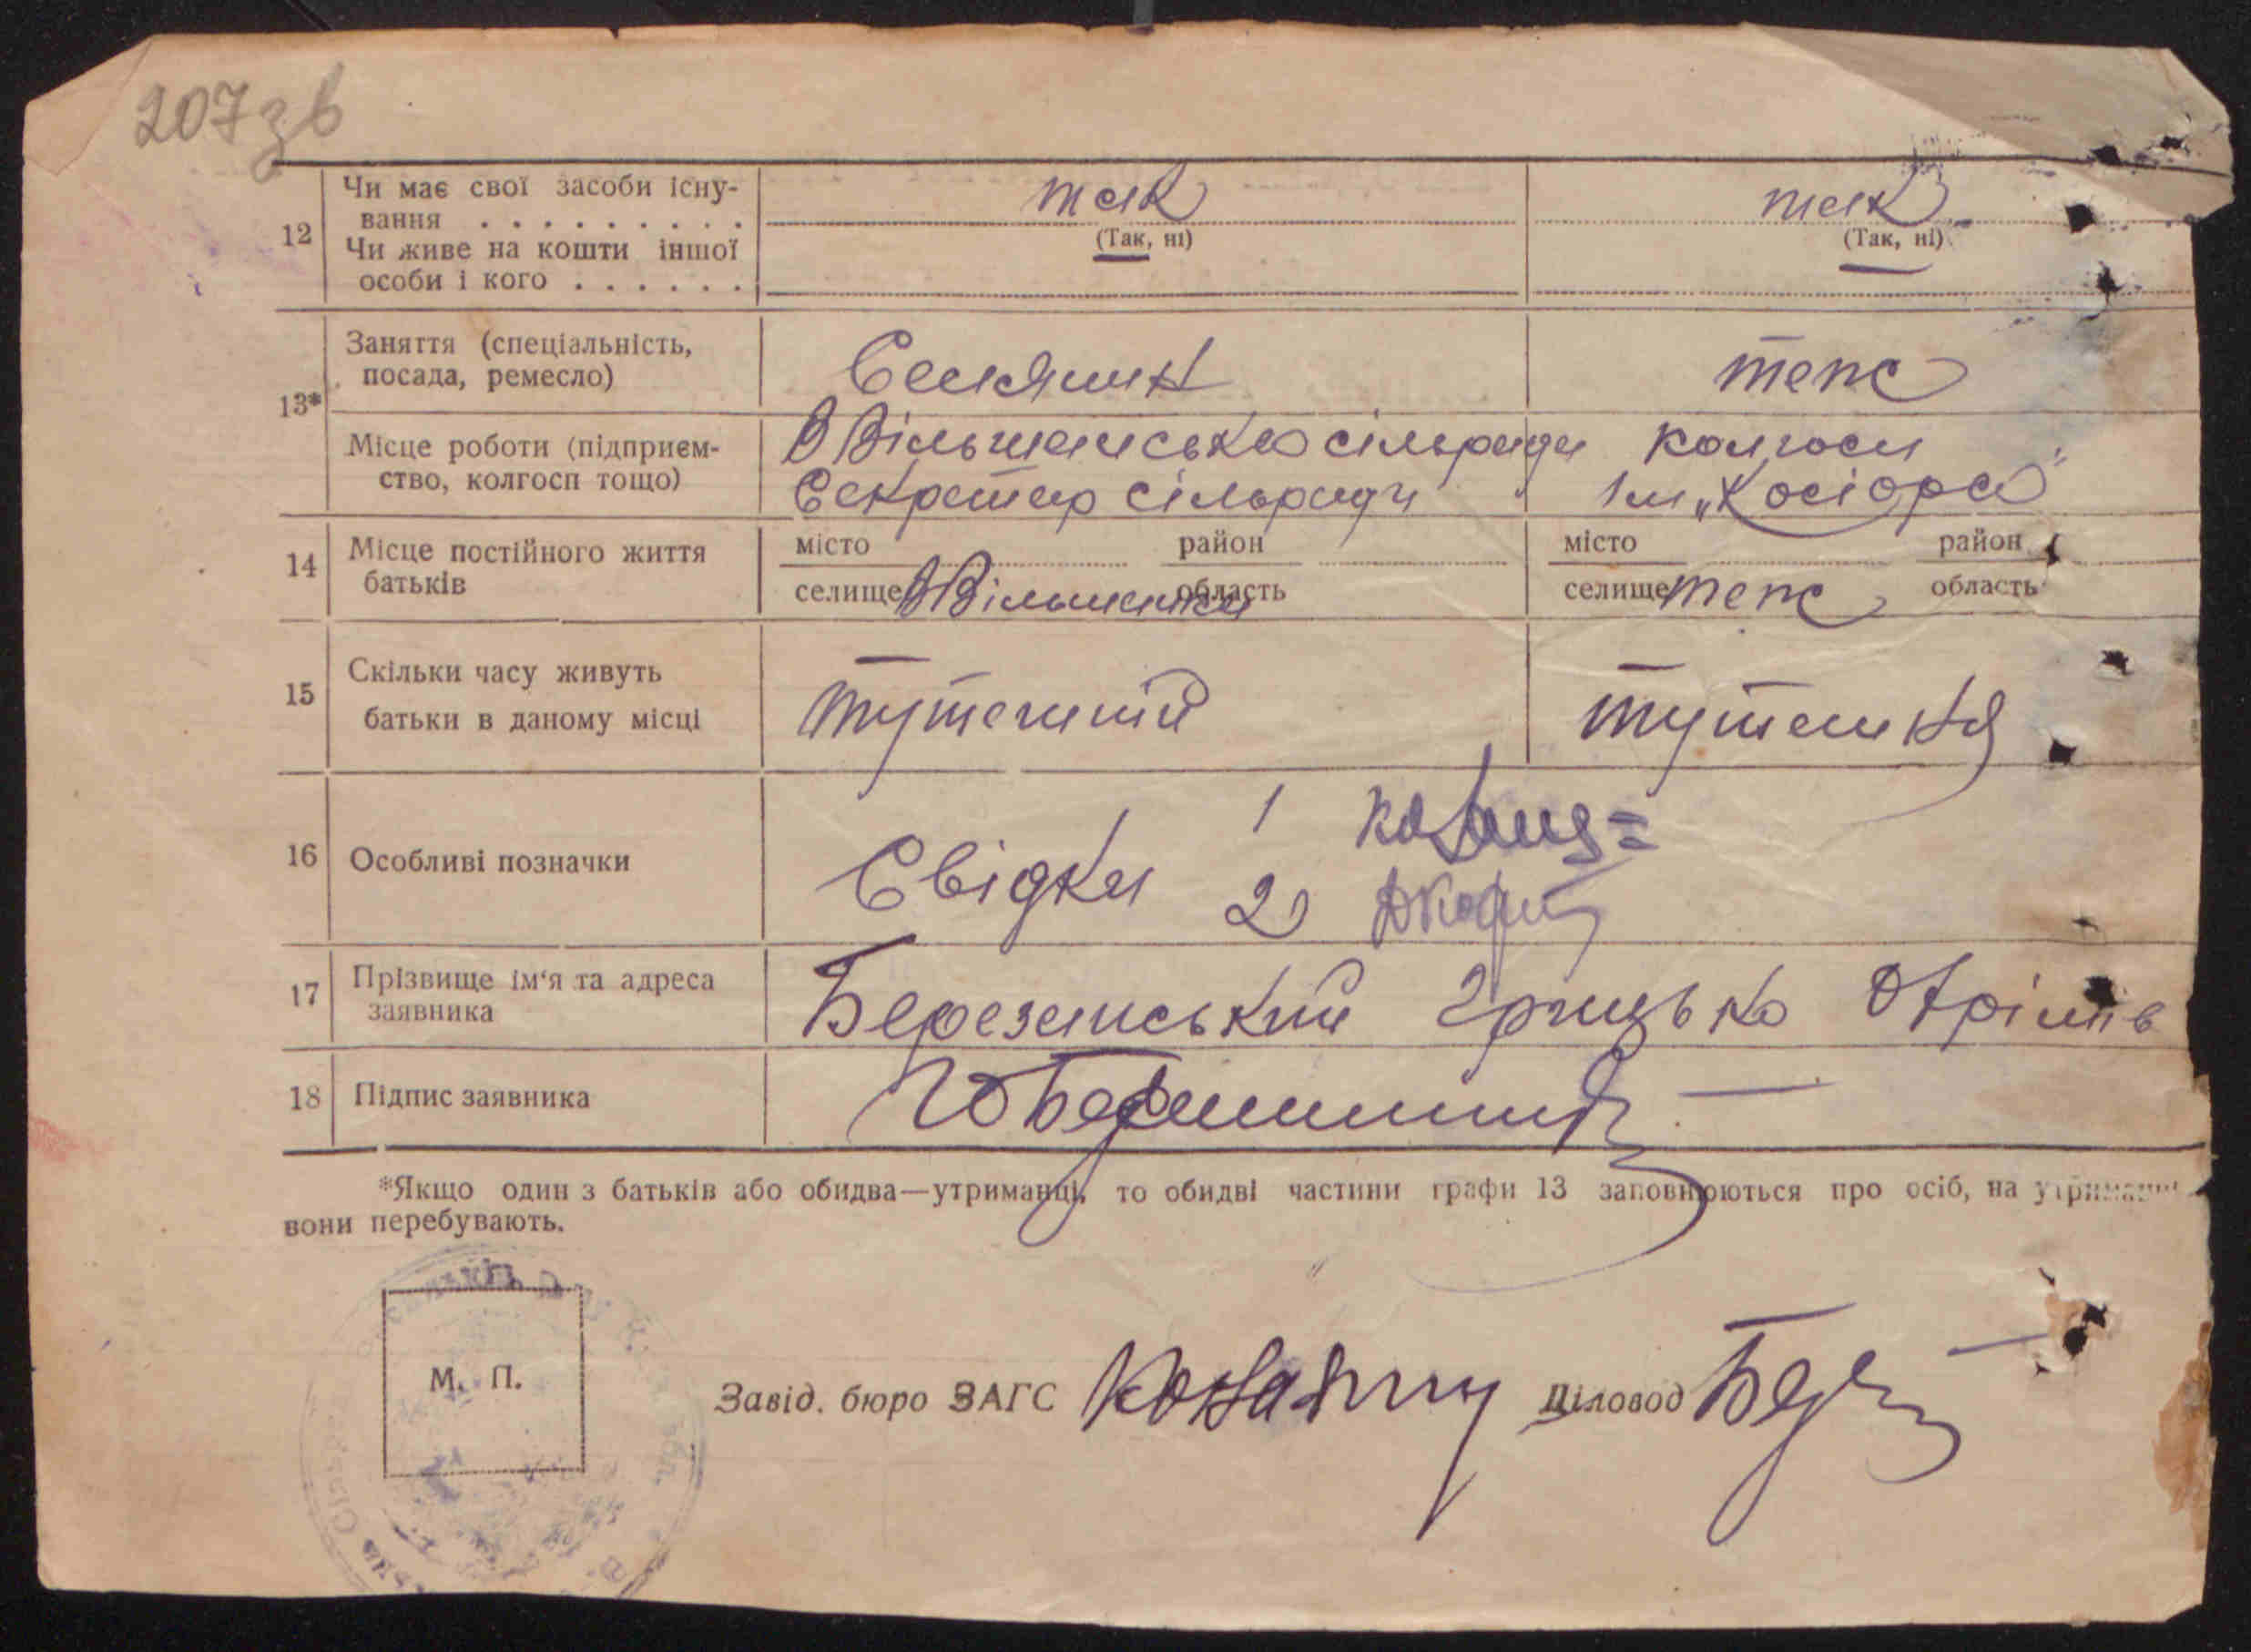 207зв
12 Чи має свої засоби існу- так так
вання . . . . . . . . . (Так, ні) (Так, ні)
Чи живе на кошти іншої
особи і кого . . . . . .
13* Заняття (спеціальність, Селянин тепс
посада, ремесло)
Місце роботи (підприєм- сільради колгосп
ство, колгосп тощо) Секретар сільради ім „Косіора"
14 Місце постійного життя місто район місто район
батьків селище область селище тепс область
15 Скільки часу живуть
батьки в даному місці тутешній тутешня
1
16 Особливі позначки Свідки 2)
17 Прізвище ім'я та адреса Березанський Грицько
заявника
18 Підпис заявника
*Якщо один з батьків або обидва—утриманці, то обидві частини графи 13 заповнюються про осіб, на
вони перебувають.
М. П.
Завід. бюро ЗАГС Діловод